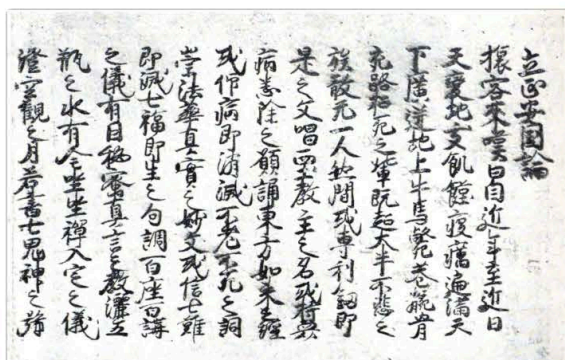 立正安國論
旅客来嘆曰自近年至近日
天變地夭飢饉疫癘遍滿天
下廣迸地上牛馬斃巷骸骨
充路招死之輩既超大半不悲之
族敢无一人然間或專利劔即
是之文唱西土教主之名或持衆
病悉除之願誦東方如来之經
或仰病即消滅不老不死之詞
崇法華真實之妙文或信七難
即滅七福即生之句調百座百講
之儀有因秘密真言之教灑五
瓶之水有全坐禪入定之儀
澄空觀之月若書七鬼神之號